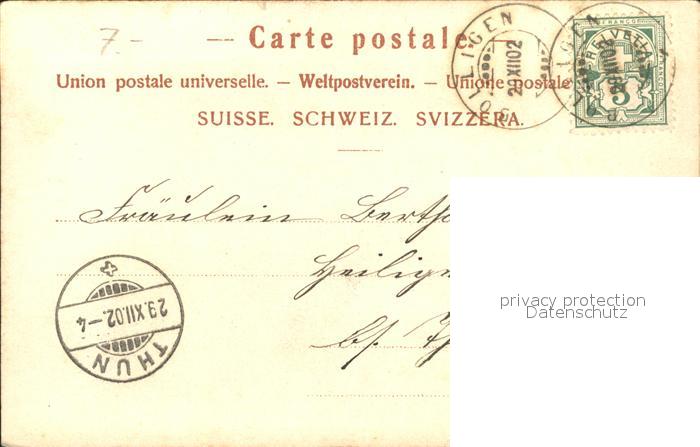 7.-
Carte postale
Union postale universelle. — Weltpostverein. — Unione postale
SUISSE. SCHWEIZ. SVIZZERA.
BOLLIGEN
29 XII 02
BOLLIGEN
29 XII 02
FRANCO
HELVETIA
5
Fräulein Bertha
Heilig
bs. Th
THUN
29.XII.02.–4
privacy protection
Datenschutz